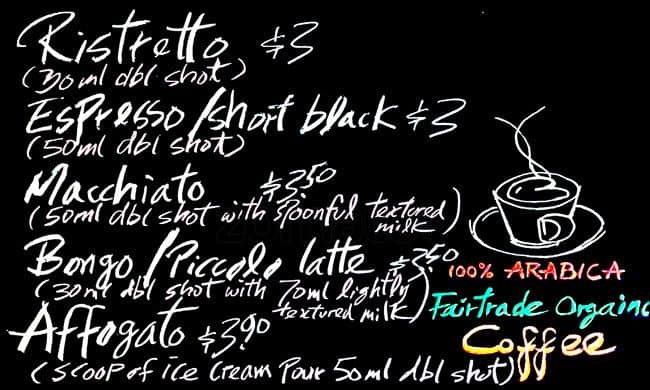 Ristretto $3
(30ml dbl shot)
Espresso/short black $3
(50ml dbl shot)
Macchiato $3.50
(50ml dbl shot with spoonful textured
milk)
Bongo/Piccolo latte $3.50
(30ml dbl shot with 70ml lightly
textured milk)
Affogato $3.90
(scoop of ice cream pour 50ml dbl shot)
D
100% ARABICA
Fairtrade Orgainc
Coffee